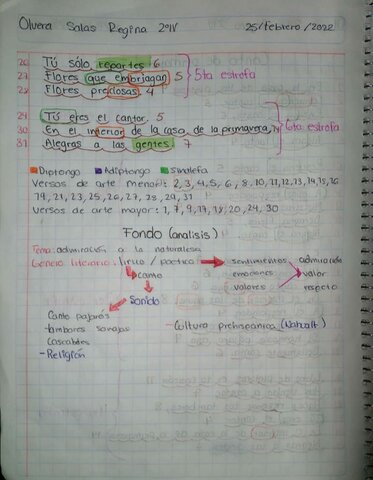 Olvera Salas Regina 2°IV 25/febrero/2022
26 Tú sólo repartes 6
27 Flores que embriagan 5 5ta estrofa
28 Flores preciosas 4
29 Tú eres el cantor. 5
30 En el interior de la casa de la primavera, 14 6ta estrofa
31 Alegras a las gentes 7
Diptongo Adiptongo Sinalefa
Versos de arte menor: 2, 3, 4, 5, 6, 8, 10, 11, 12, 13, 14, 15, 16
19, 21, 23, 25, 26, 27, 28, 29, 31
Versos de arte mayor: 1, 7, 9, 17, 18, 20, 24, 30
Fondo (analisis)
Tema: admiración a la naturaleza
Genero literario: lirico / poetico sentimientos admiración
canto emociones valor
valores respeto
Sonido
Canto pajaros
tambores sonajas - Cultura prehispanica (Nahuatl)
Cascabeles
- Religión